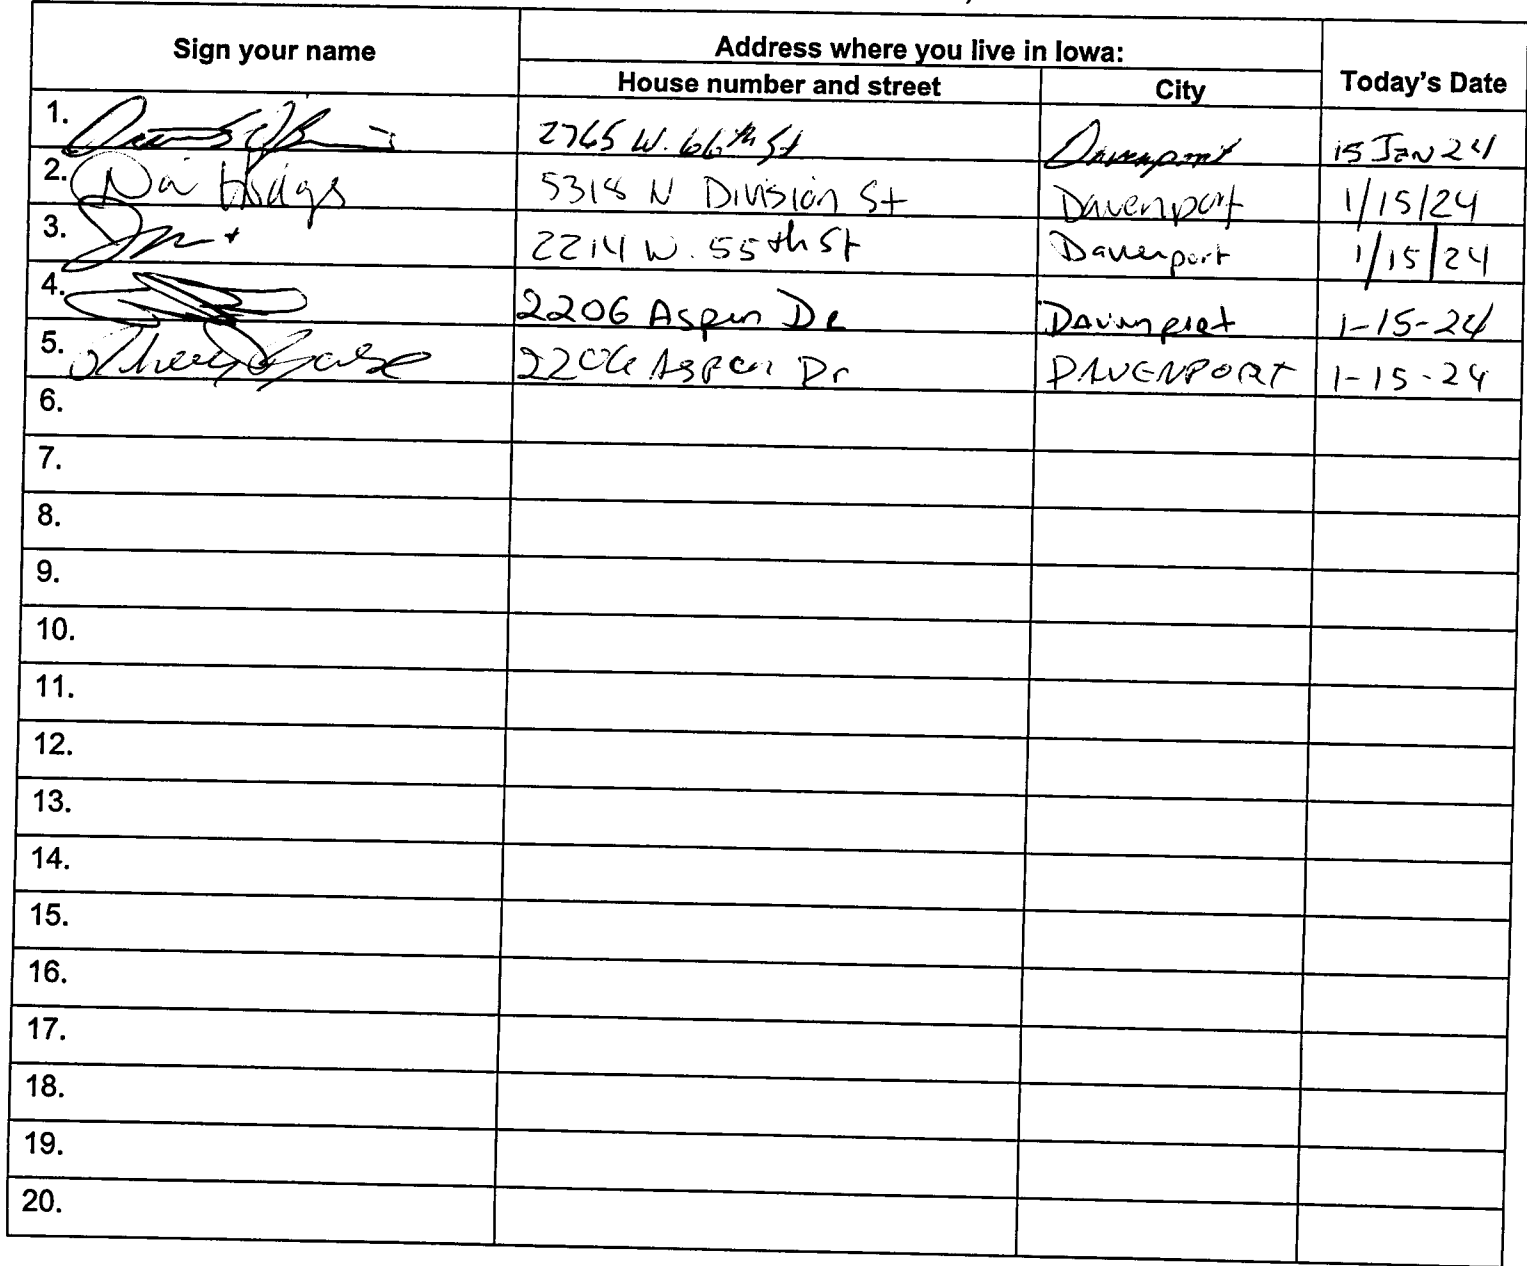 Sign your name
Address where you live in Iowa:
House number and street
City
Today's Date
1. 2765 W. 66th St Davenport 15 Jan 24
2. 5318 N Division St Davenport 1/15/24
3. 2214 W. 55th St Davenport 1/15/24
4. 2206 Aspen Dr Davenport 1-15-24
5. 2206 Aspen Dr DAVENPORT 1-15-24
6.
7.
8.
9.
10.
11.
12.
13.
14.
15.
16.
17.
18.
19.
20.